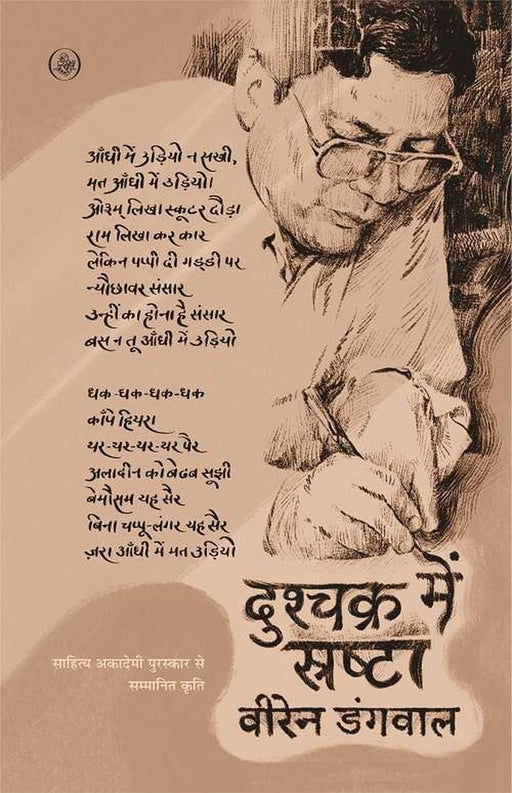 आँधी में उड़ियो न सखी,
मत आँधी में उड़ियो।
ओ३म् लिखा स्कूटर दौड़ा
राम लिखा कर कार
लेकिन पप्पी दी गड्डी पर
न्यौछावर संसार
उन्हीं का होना है संसार
बस न तू आँधी में उड़ियो
धक-धक-धक-धक
काँपे हियरा
थर-थर-थर-थर पैर
अलादीन को बेढब सूझी
बेमौसम यह सैर
बिना चप्पू-लंगर यह सैर
ज़रा आँधी में मत उड़ियो
दुश्चक्र में
स्रष्टा
वीरेन डंगवाल
साहित्य अकादेमी पुरस्कार से
सम्मानित कृति